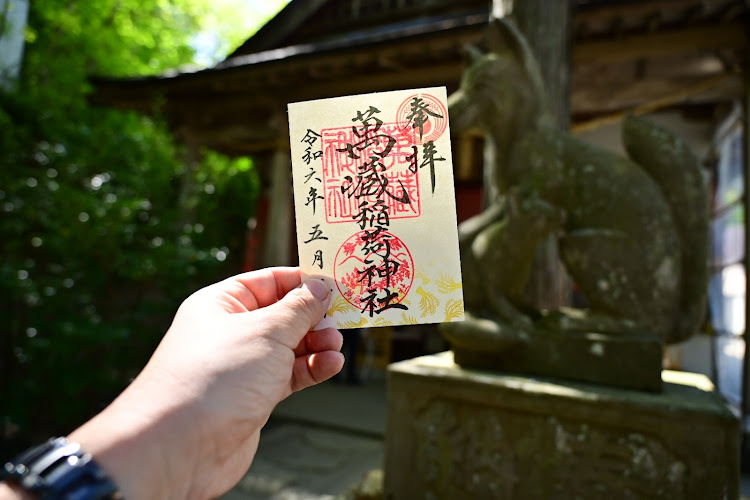 奉拝
萬藏稲荷神社
令和六年五月